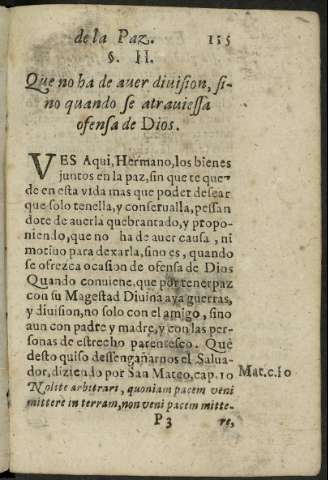 de la Paz. 135
§. II.
Que no ha de auer diuision, si-
no quando se atrauiessa
ofensa de Dios.
VES Aqui, Hermano, los bienes
juntos en la paz, sin que te que-
de en esta vida mas que poder desear
que solo tenella, y conserualla, pessan
dote de auerla quebrantado, y propo-
niendo, que no ha de auer causa, ni
motiuo para dexarla, sino es, quando
se ofrezca ocasion de ofensa de Dios
Quando conuiene, que por tener paz
con su Magestad Diuina aya guerras,
y diuision, no solo con el amigo, sino
aun con padre y madre, y con las per-
sonas de estrecho parentesco. Que
desto quiso dessengañarnos el Salua-
dor, diziendo por San Mateo, cap. 10 Mat. c. 10
Nolite arbitrari, quoniam pacem veni
mittere in terram, non veni pacem mitte-
P3 re,